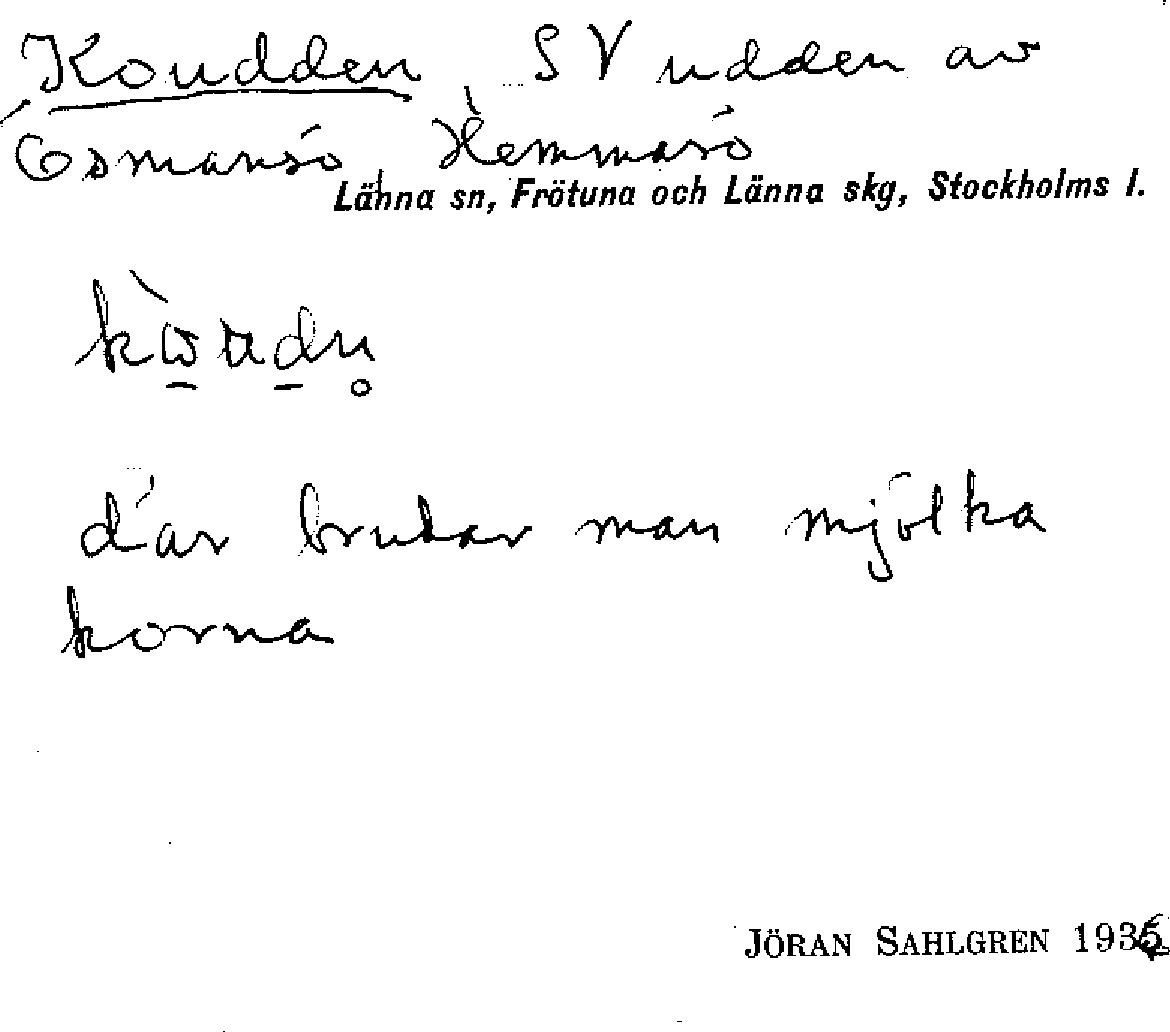 Koudden, SV udden av
Ösmansö, Hemmarö
Länna sn, Frötuna och Länna skg, Stockholms l.
där brukar man mjölka
korna
JÖRAN SAHLGREN 1936